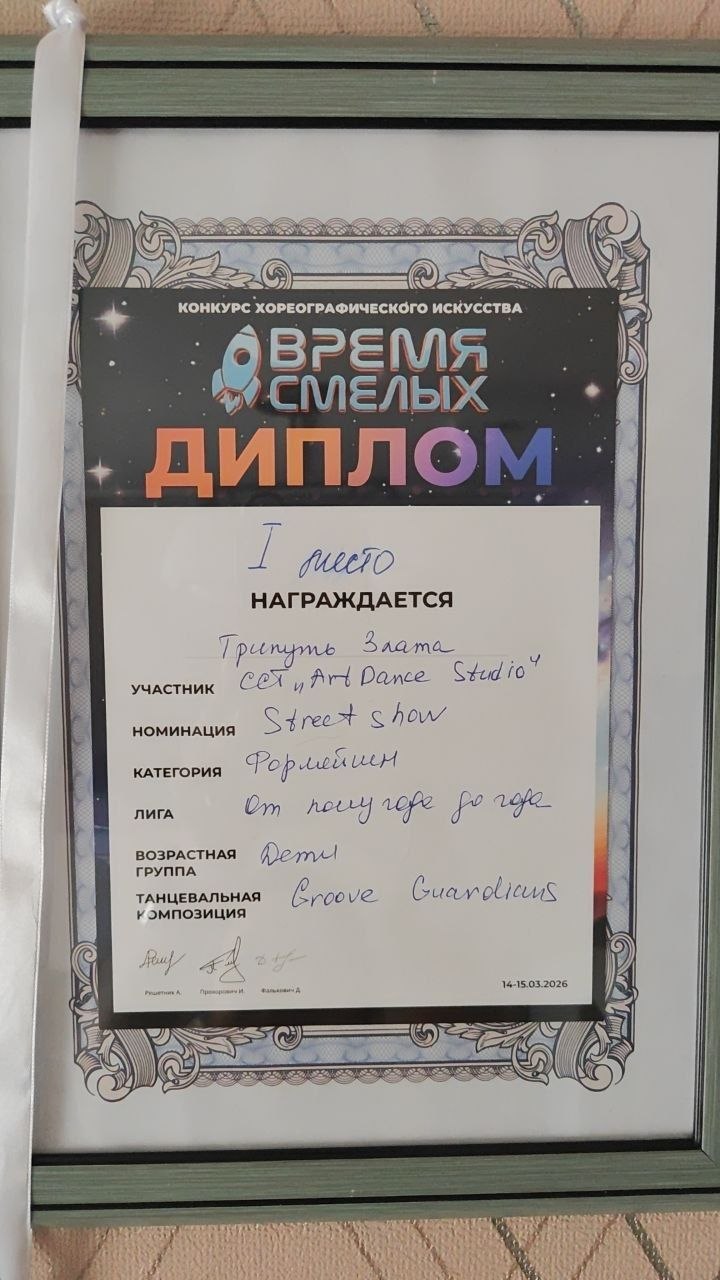 КОНКУРС ХОРЕОГРАФИЧЕСКОГО ИСКУССТВА
ВРЕМЯ
СМЕЛЫХ
ДИПЛОМ
I место
НАГРАЖДАЕТСЯ
Трипуть Злата
УЧАСТНИК ССТ „Art Dance Studio"
НОМИНАЦИЯ Street show
КАТЕГОРИЯ Формейшн
ЛИГА От полугода до года
ВОЗРАСТНАЯ ГРУППА Дети
ТАНЦЕВАЛЬНАЯ КОМПОЗИЦИЯ Groove Guardians
Решетник А. Прохорович И. Фалькович Д.
14-15.03.2026